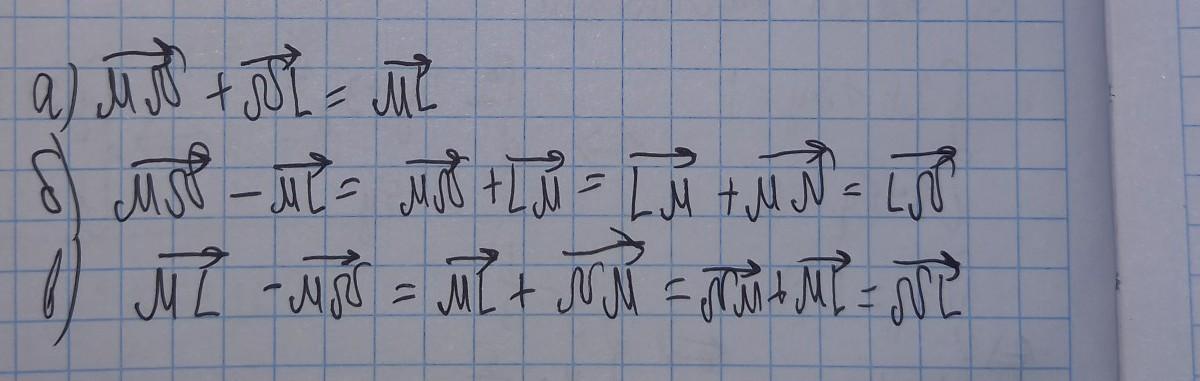 а) $\overrightarrow{MN} + \overrightarrow{NL} = \overrightarrow{ML}$
б) $\overrightarrow{MN} - \overrightarrow{ML} = \overrightarrow{MN} + \overrightarrow{LM} = \overrightarrow{LM} + \overrightarrow{MN} = \overrightarrow{LN}$
в) $\overrightarrow{ML} - \overrightarrow{MN} = \overrightarrow{ML} + \overrightarrow{NM} = \overrightarrow{NM} + \overrightarrow{ML} = \overrightarrow{NL}$